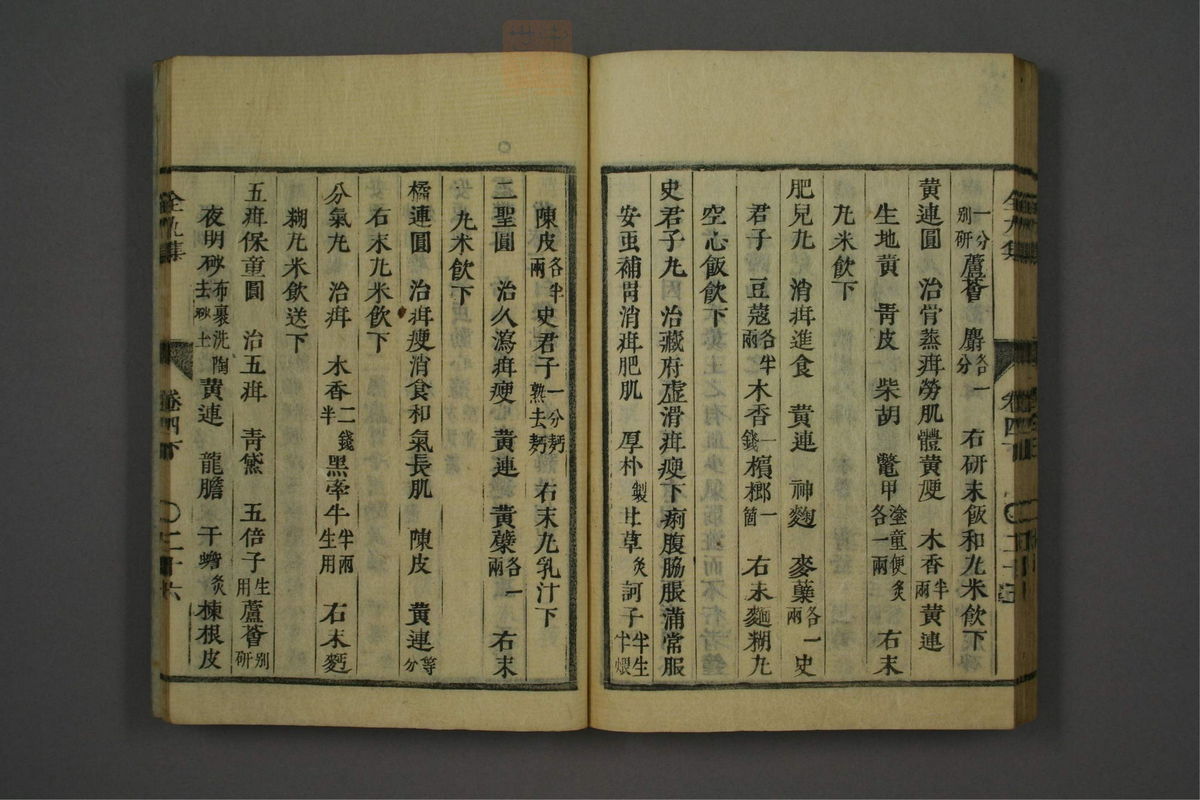 一分別研蘆薈 麝各一分 右研末飯和丸米飲下
黃連圓 治骨蒸疳勞肌體黃瘦 木香半兩黃連
生地黄 靑皮 柴胡 鼈甲塗童便炙各一兩 右末
丸米飲下
肥兒丸 消疳進食 黄連 神麴 麥蘖各一兩史
君子 豆蔻各半兩木香一錢檳榔一箇 右末麵糊丸
空心飯飲下
史君子丸 治藏府虛滑疳瘦下痢腹脇脹滿常服
安蟲補胃消疳肥肌 厚朴製甘草炙訶子半生半煨
陳皮各半兩史君子一分麪熟去麪 右末丸乳汁下
三聖圓 治久瀉疳瘦 黄連 黄蘗各一兩 右末
丸米飲下
橘連圓 治疳瘦消食和氣長肌 陳皮 黄連等分
右末丸米飲下
分氣丸 治疳 木香二錢半黑牽牛半兩生用 右末麪
糊丸米飲送下
五疳保童圓 治五疳 靑黛 五倍子生用蘆薈別研
夜明砂布裹洗陶去砂土黄連 龍膽 干蟾炙楝根皮
全九集
卷四下
二十六